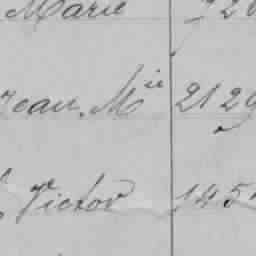 Marie 720
Jean. Mie 2129
Victor 145